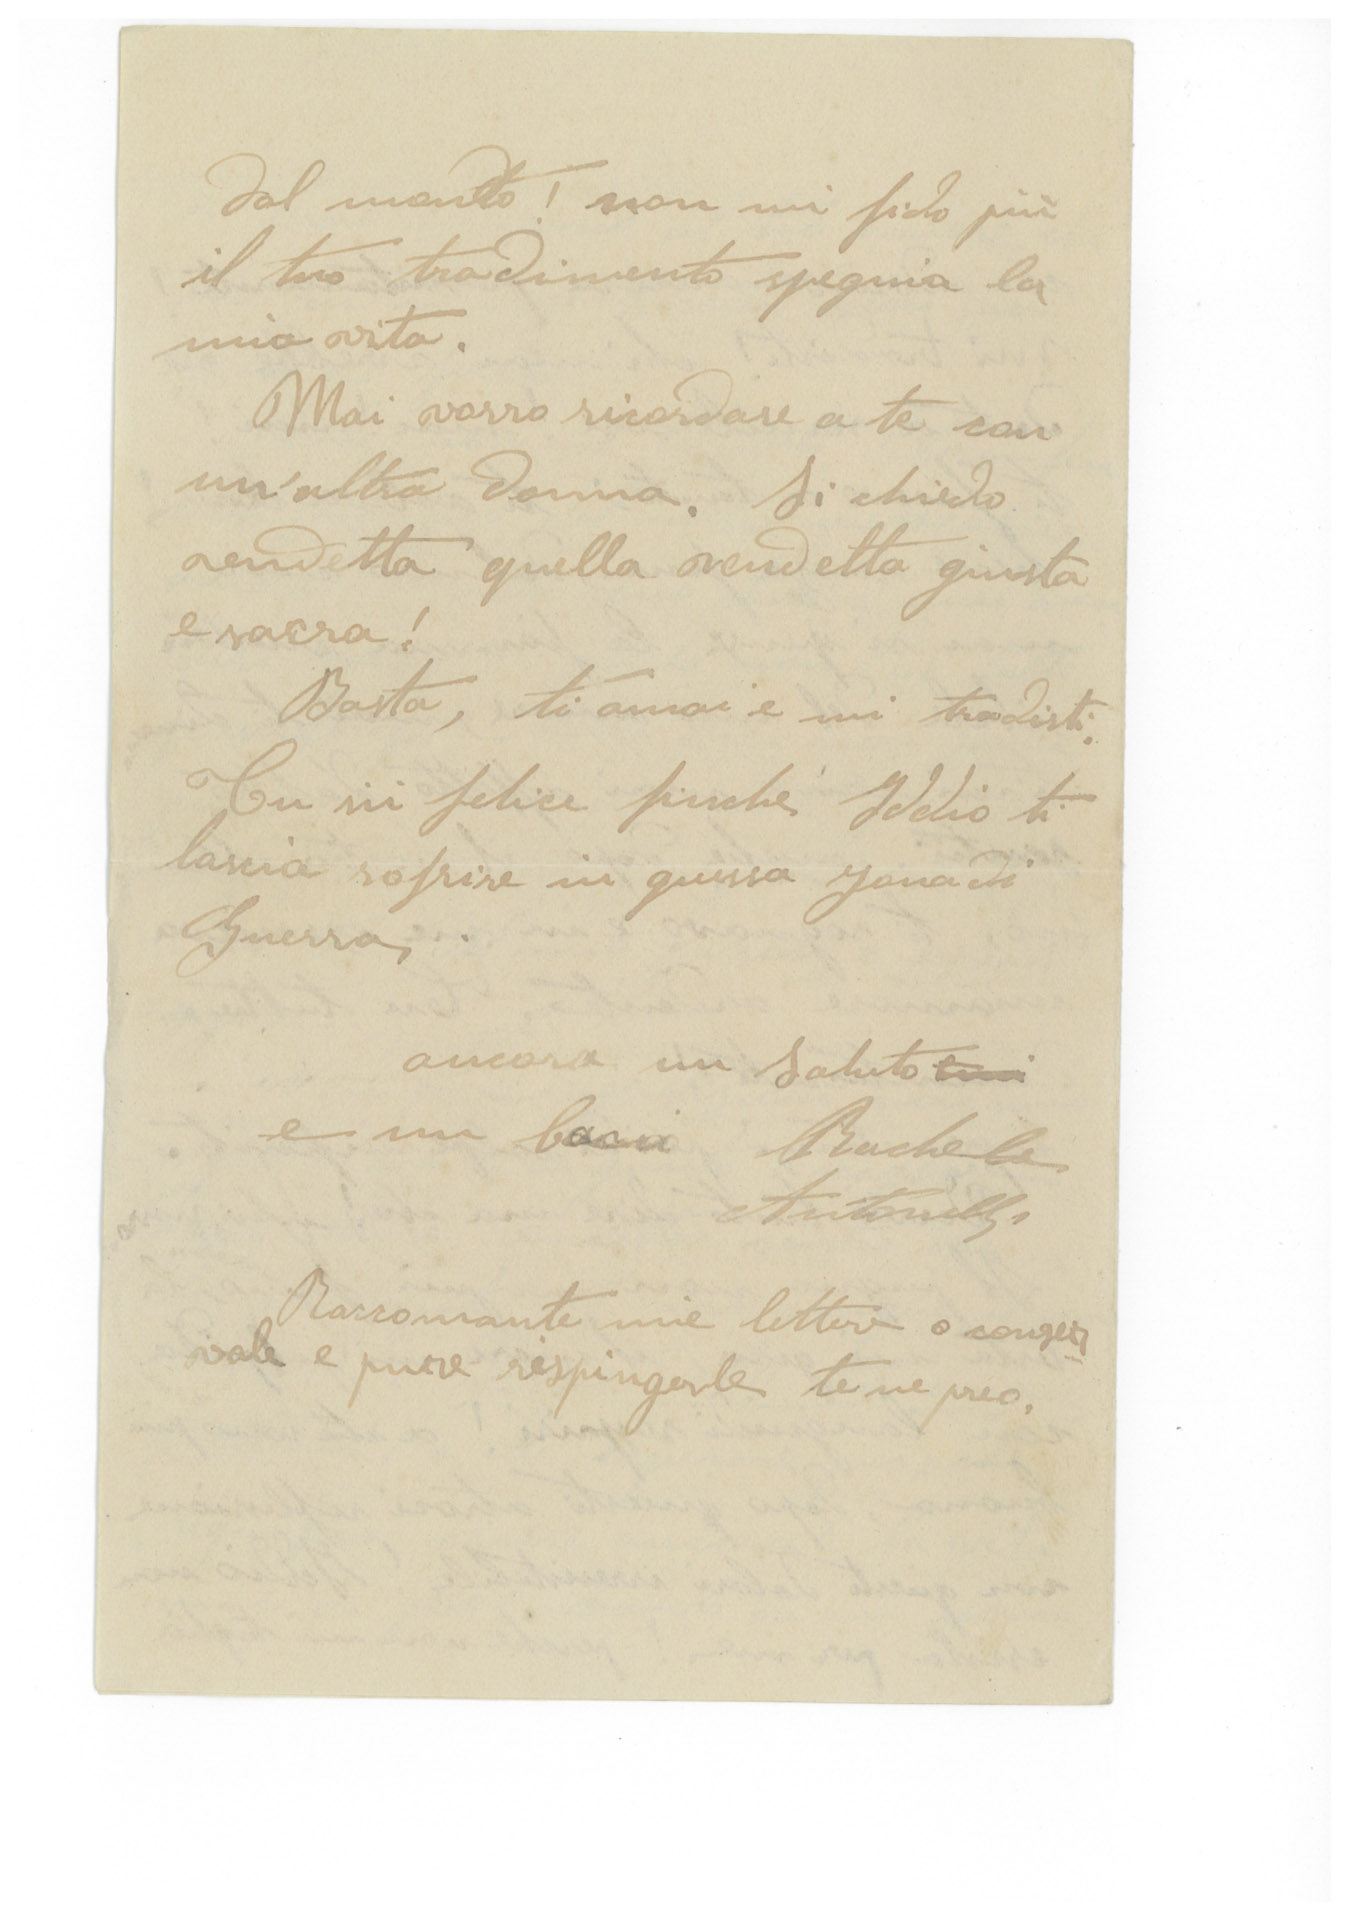 dal mondo! non mi fido più
il tuo tradimento spegnia la
mia vita.
Mai vorro ricordare a te con
un'altra donna. Si chiedo
vendetta quella vendetta giusta
e sacra!
Basta, ti amai e mi tradisti.
Tu sii felice finchè Iddio ti
lascia sofrire in quessa zona di
Guerra,
ancora un saluto
e un bacu Rachele
Antonelli
Rarromante mie lettere o conser-
vale e pure respingerle te ne preo.